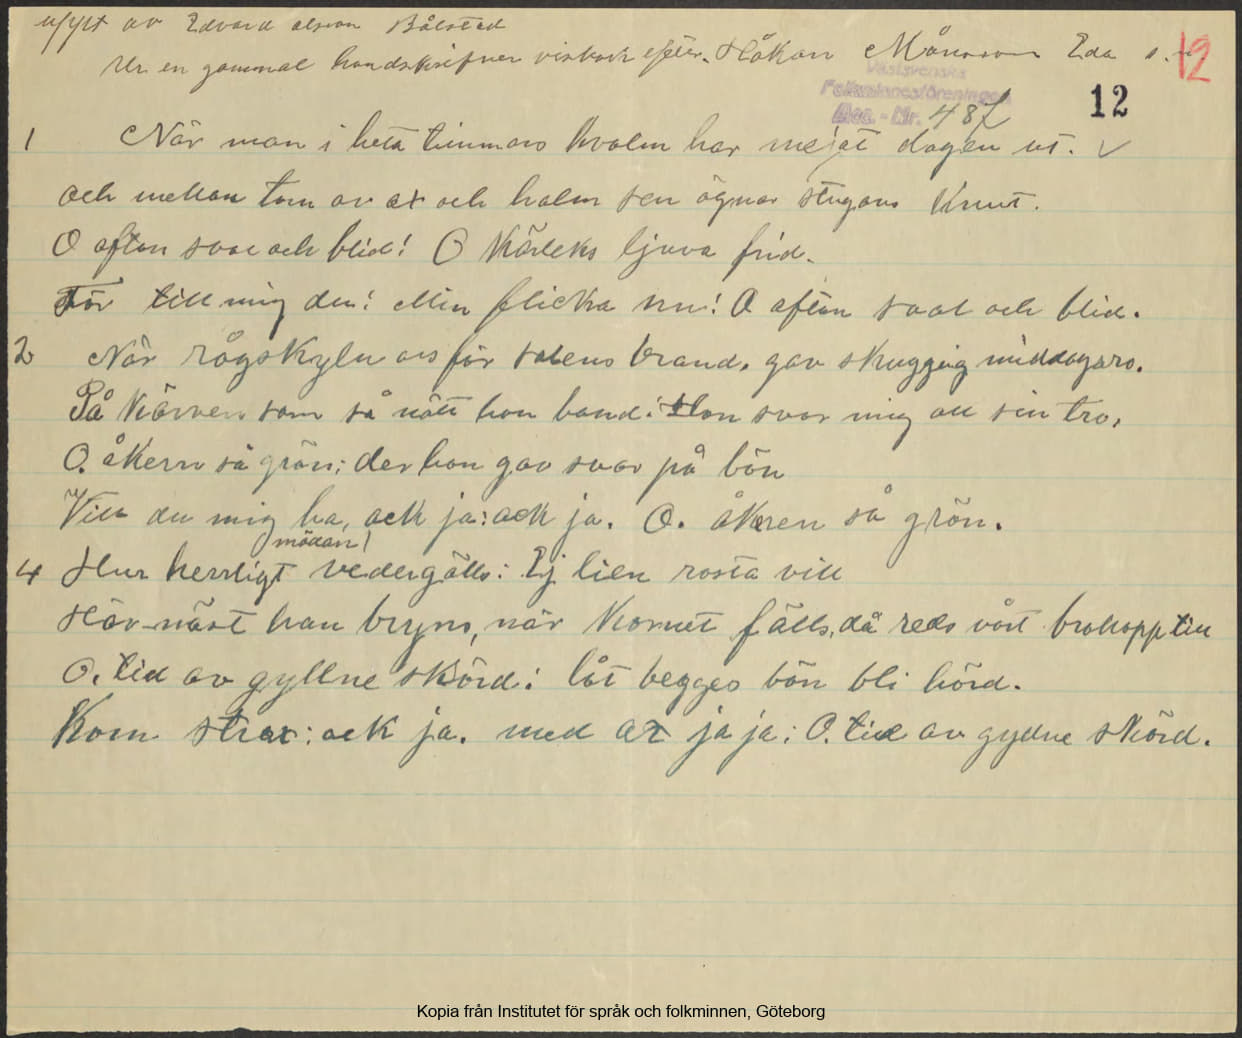 av Edvard Olsson Bålstad
Ur en gammal handskrifven visbok efter. Håkan Månsson Eda s. n
12
Västsvenska
Folkminnesföreningen
Acc. - Nr. 487
12
1 När man i heta timmars kvalm har mejat dagen ut.
och mellan tom av ax och halm sen ögnar stugans knut.
O afton sval och blid! O kärleks ljuva frid.
För till mig den! Min flicka nu! O afton sval och blid.
2 När rågskylen oss för solens brand. gav skuggig middagsro.
På kärven som så nätt hon band: Hon svor mig all sin tro,
O. åkern så grön; der hon gav svar på bön
Vill du mig ha, ack ja: ack ja. O. åkeren så grön.
mödan!
4 Hur herrligt vedergälls: Ej lien rosta vill
Här näst han bryns, när kornet fälls, då reds vårt brolopp till
O. tid av gyllne skörd: låt begges bön bli hörd.
Kom strax: ack ja. med ax ja ja: O. tid av gyllne skörd.
Kopia från Institutet för språk och folkminnen, Göteborg